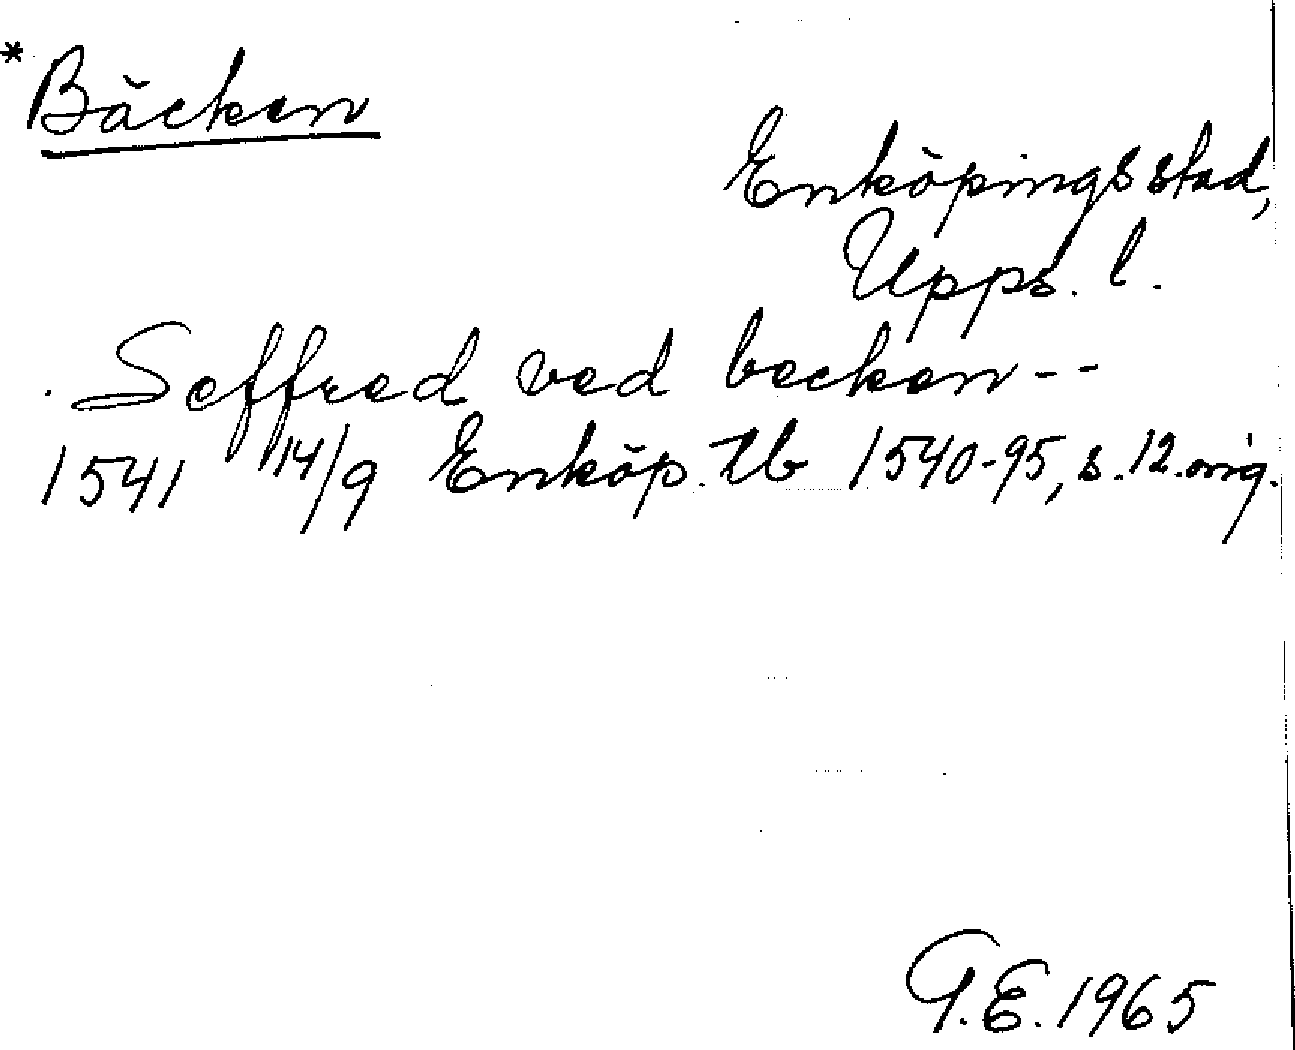 *Bäcken
Enköpings stad,
Upps. l.
Seffred ved becken--
1541 14/9 Enköp. tb 1540-95, s. 12. orig.
G.E. 1965